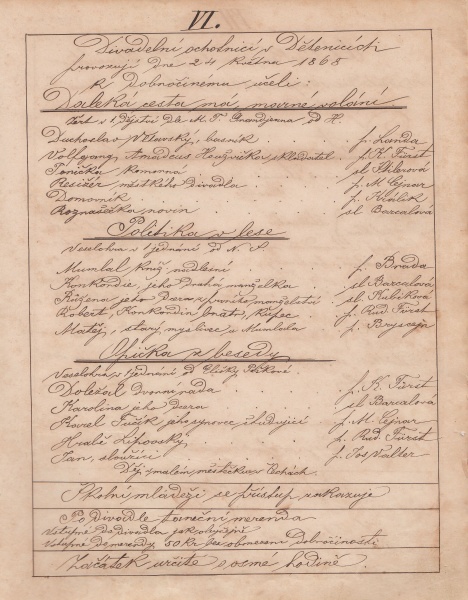 VI.
Divadelní ochotníci v Dětenicích
provozují dne 24 Května 1868
Ku Dobročinému účeli:
Daleká cesta má, marné volání
Žert v 1 dějství dle M. T. Grandjeana od H.
Duchoslav Vltavský, básník . . . p. Landa
Volfgang Amadeus Houžvička skladatel . p. K. Fürst
Tonička komorná . . . sl.
Režisér městského divadla . . . p. M. Cejnar
Domovník . . . p. Králík
Roznašečka novin . . . sl. Barcalová
Politika v lese
Veselohra v 1 jednání od N. S.
Mumlal kníž. nadlesní . . . p. Brada
Konkordie, jeho druhá manželka . sl. Barcalová
Růžena jeho dcera z prvního manželství . sl. Kubíčková
Robert, Konkordin bratr, kupec . p. Rud. Fürst
Matěj, starý myslivec u Mumlala . p.
Opička z besedy
Veselohra v 1 jednání od Elišky Peškové
Doležal dvorní rada . . . p. K. Fürst
Karolina jeho dcera . . . sl. Barcalová
Karel Tuček, jeho synovec studující . p. M. Cejnar
Hrabě Lipovský . . . p. Rud. Fürst
Jan, sloužící . . . p. Jos Valter
Děj v malém městečku v Čechách.
Školní mládeži se přístup zakazuje
Po Divadle taneční merenda
Vstupné do divadla jak obyčejně
Vstupné do merendy 50 Kr bez obmezení Dobročinosti
Začátek určitě o osmé hodině.